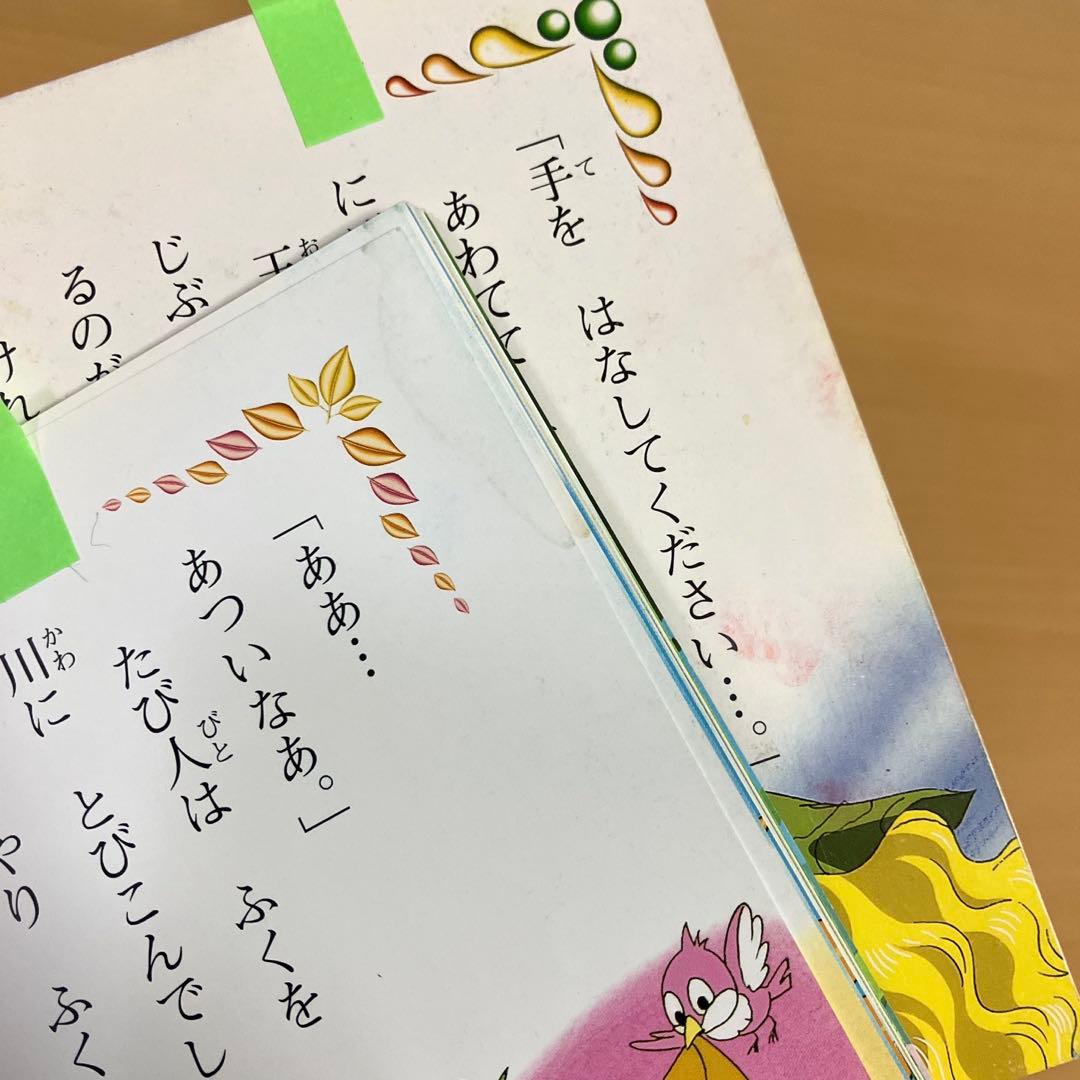 「手を　はなしてください…。」
て
あわてて
に
王
お
じぶ
るのだ
けれ
「ああ…
あついなあ。」
たび人は　ふくを
びと
川に　とびこんでし
かわ
やり　ふく